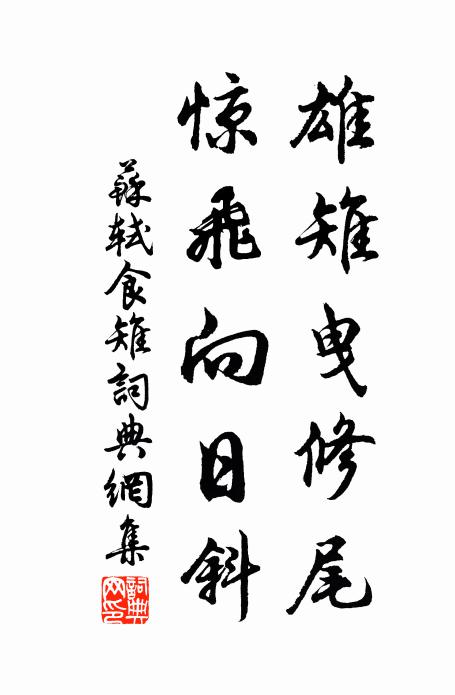 雄雉曳修尾
惊飛向日斜
蘇軾食雉詞典網集
詞典網印